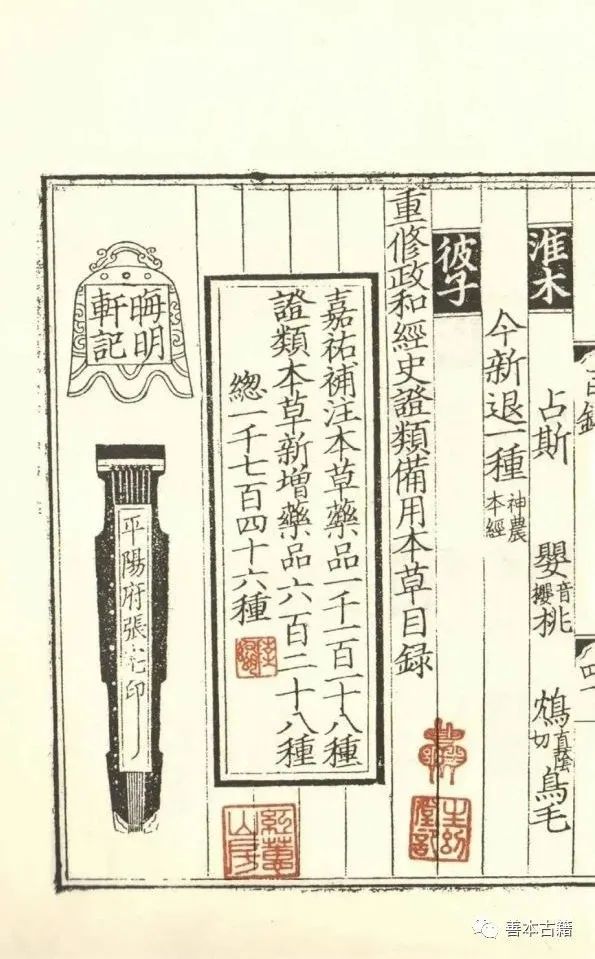 淮木
占斯
嬰音櫻桃
鴆直蔭切鳥毛
今新退一種神農本經
彼子
重修政和經史證類備用本草目錄
嘉祐補注本草藥品一千一百一十八種
證類本草新增藥品六百二十八種
緫一千七百四十六種
晦明
軒記
平陽府張宅印
紅蕙
山房
善本古籍